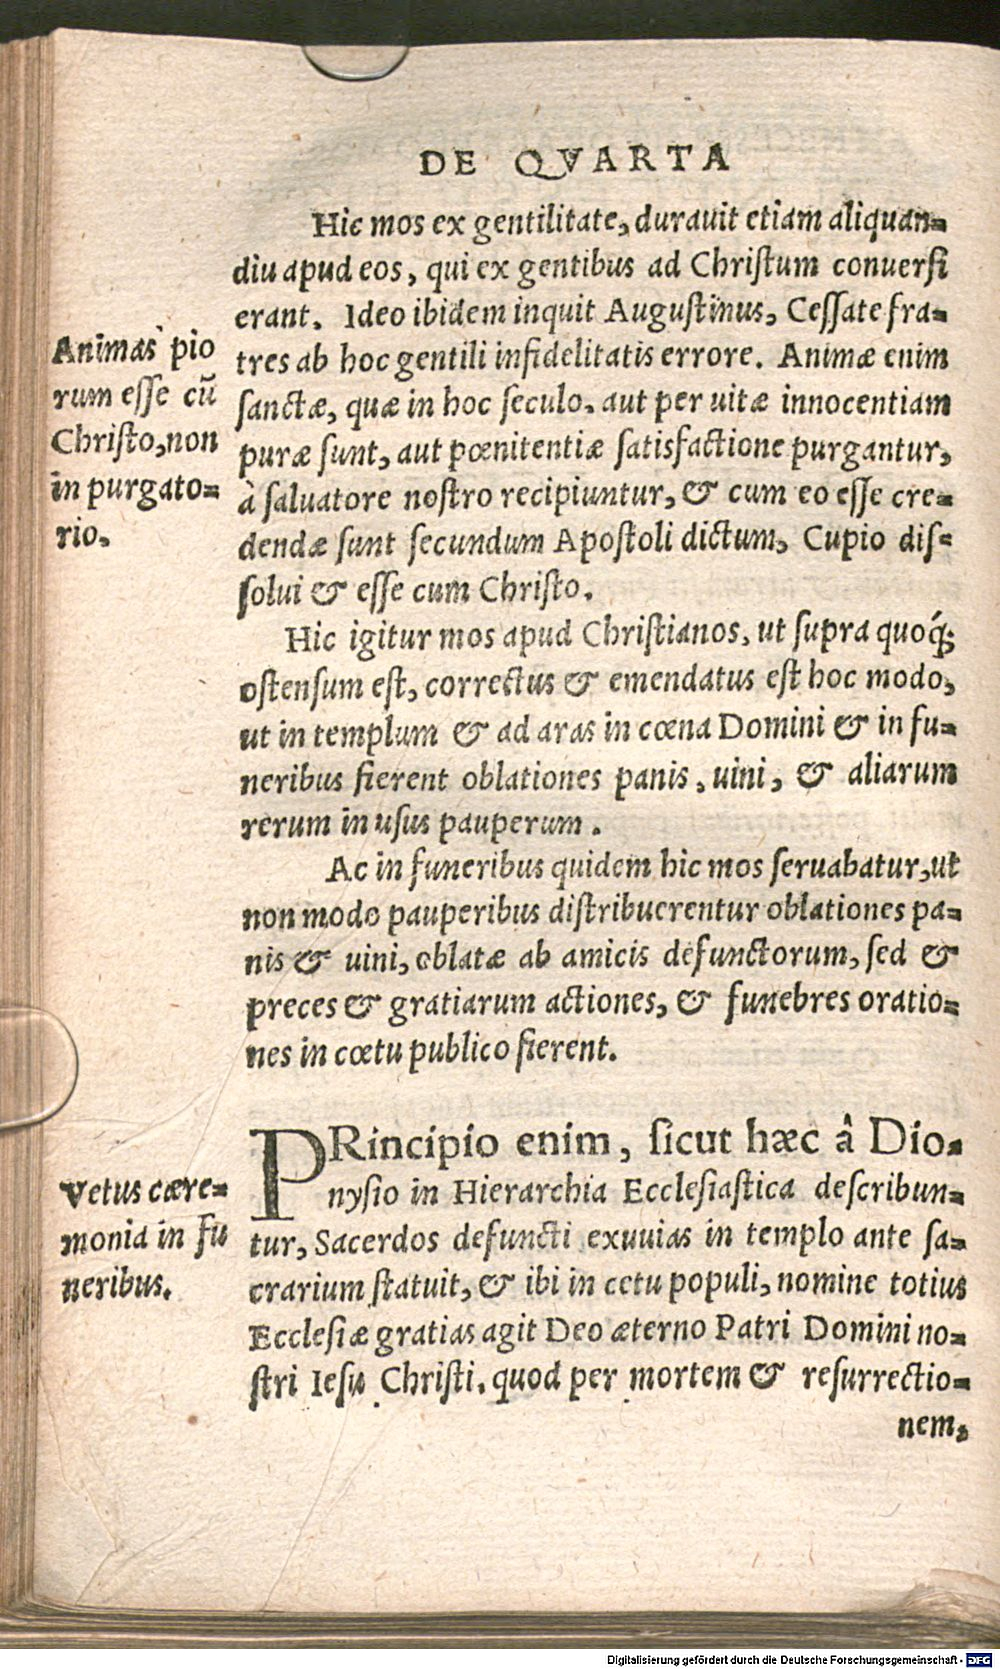 DE QVARTA
Hic mos ex gentilitate, durauit etiam aliquan-
diu apud eos, qui ex gentibus ad Chriſtum conuerſi
erant. Ideo ibidem inquit Auguſtinus, Ceſſate fra-
tres ab hoc gentili infidelitatis errore. Animæ enim
ſanctæ, quæ in hoc ſeculo, aut per uitæ innocentiam
puræ ſunt, aut pœnitentiæ ſatisfactione purgantur,
à ſaluatore noſtro recipiuntur, & cum eo eſſe cre-
dendæ ſunt ſecundum Apoſtoli dictum, Cupio diſ-
ſolui & eſſe cum Chriſto.
Animas pio
rum eſſe cū
Chriſto, non
in purgato-
rio.
Hic igitur mos apud Chriſtianos, ut ſupra quoq́;
oſtenſum eſt, correctus & emendatus eſt hoc modo,
ut in templum & ad aras in cœna Domini & in fu-
neribus fierent oblationes panis, uini, & aliarum
rerum in uſus pauperum.
Ac in funeribus quidem hic mos ſeruabatur, ut
non modo pauperibus diſtribuerentur oblationes pa-
nis & uini, oblatæ ab amicis defunctorum, ſed &
preces & gratiarum actiones, & funebres oratio-
nes in cœtu publico fierent.
PRincipio enim, ſicut hæc â Dio-
nyſio in Hierarchia Eccleſiaſtica deſcribun-
tur, Sacerdos defuncti exuuias in templo ante ſa-
crarium ſtatuit, & ibi in cetu populi, nomine totius
Eccleſiæ gratias agit Deo æterno Patri Domini no-
ſtri Ieſu Chriſti, quod per mortem & reſurrectio-
nem,
Vetus cære-
monia in fu
neribus.
Digitalisierung gefördert durch die Deutsche Forschungsgemeinschaft - DFG